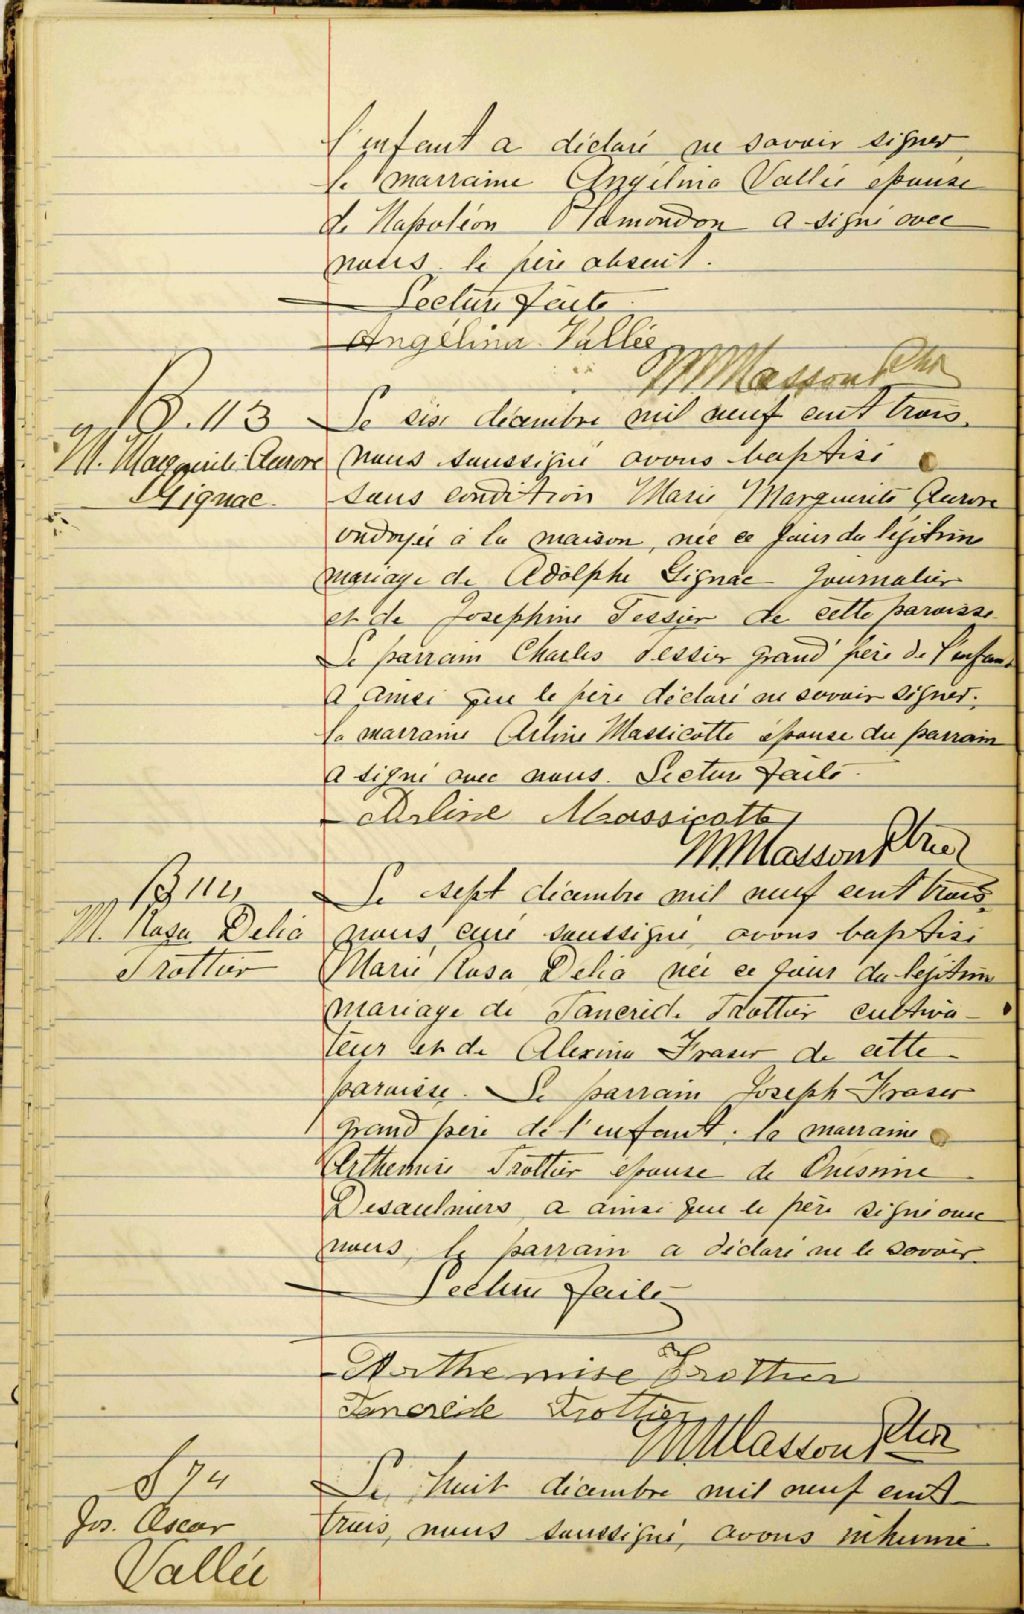 l'enfant a déclaré ne savoir signer
la marraine Angélina Vallée épouse
de Napoléon Plamondon a signé avec
nous. le père absent.
Lecture faite.
Angélina Vallée
M Masson Ptre
B. 113
M. Marguerite Aurore
Gignac.
Le six décembre mil neuf cent trois,
nous soussigné avons baptisé
sous condition Marie Marguerite Aurore
ondoyée à la maison, née ce jour du légitime
mariage de Adolphe Gignac journalier
et de Josephine Tessier de cette paroisse.
Le parrain Charles Tessier grand père de l'enfant
a ainsi que le père déclaré ne savoir signer.
la marraine Arline Massicotte épouse du parrain
a signé avec nous. Lecture faite.
Arline Massicotte
M. Masson Ptre
B 114
M. Rosa Delia
Trottier
Le sept décembre mil neuf cent trois,
nous, curé soussigné, avons baptisé
Marie Rosa Delia née ce jour du légitime
mariage de Tancrède Trottier cultiva-
teur et de Alexina Fraser de cette
paroisse. Le parrain Joseph Fraser
grand père de l'enfant; la marraine
Arthemise Trottier épouse de Onesime
Desaulniers, a ainsi que le père signé avec
nous, le parrain a déclaré ne le savoir.
Lecture faite
Arthemise Trottier
Tancrède Trottier
M. Masson Ptre
S 74
Jos. Oscar
Vallée
Le huit décembre mil neuf cent
trois, nous soussigné, avons inhumé